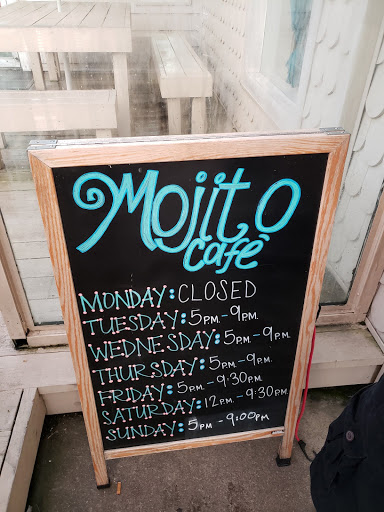 Mojito
Café
MONDAY: CLOSED
TUESDAY: 5PM-9PM.
WEDNESDAY: 5PM.-9PM
THURSDAY: 5PM-9PM.
FRIDAY: 5PM-9:30PM.
SATURDAY: 12PM.-9:30PM.
SUNDAY: 5PM-9:00PM